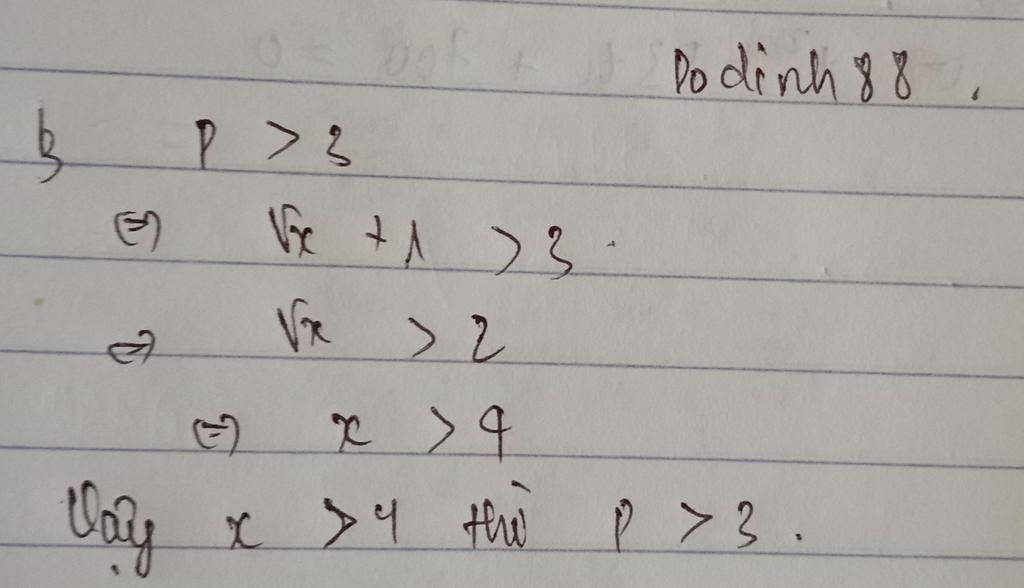 Dodinh88.
b P > 3
⇔ √x + 1 > 3.
⇔ √x > 2
⇔ x > 4
Vậy x > 4 thì P > 3.